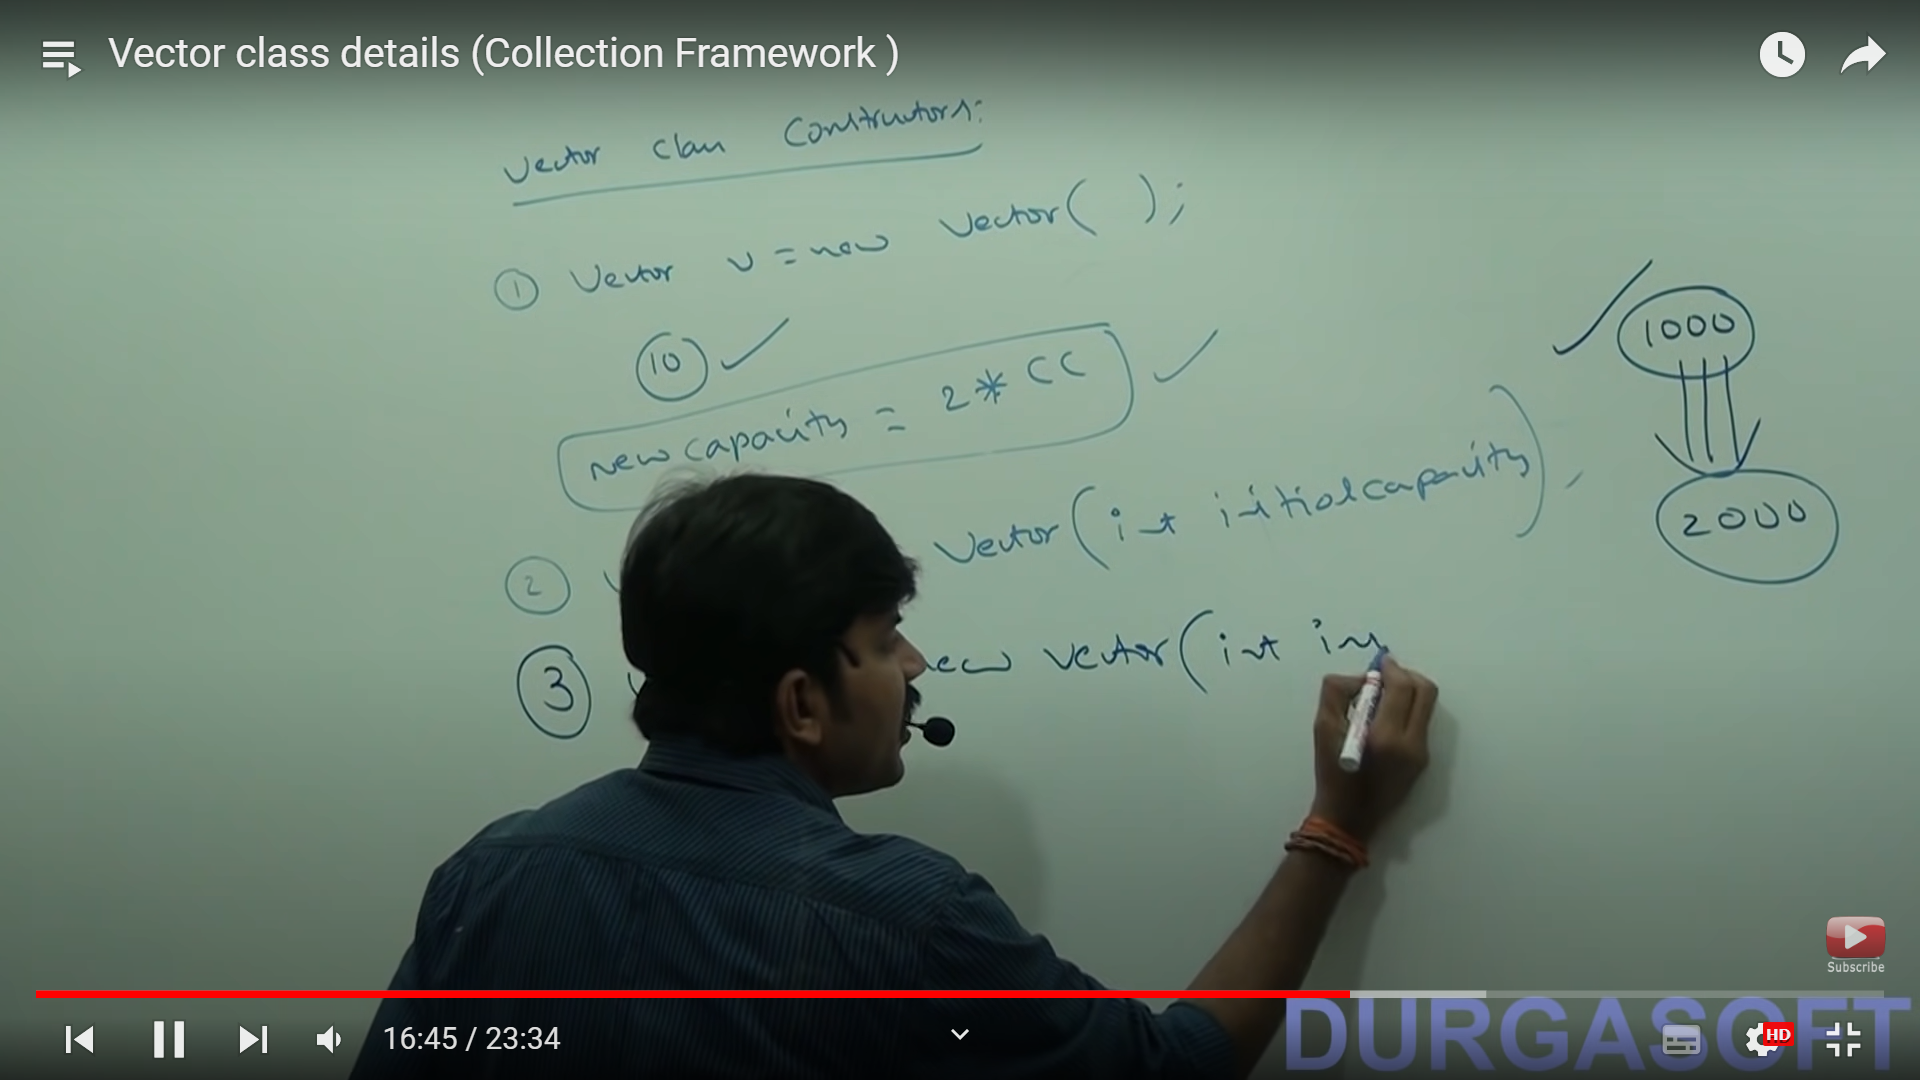 Vector class details (Collection Framework )
Vector Class Constructors:
① Vector v = new Vector( );
10
new capacity = 2 * CC
1000
2000
② Vector(int initialcapacity)
③ new Vector(int in
Subscribe
16:45 / 23:34
HD
DURGASOFT